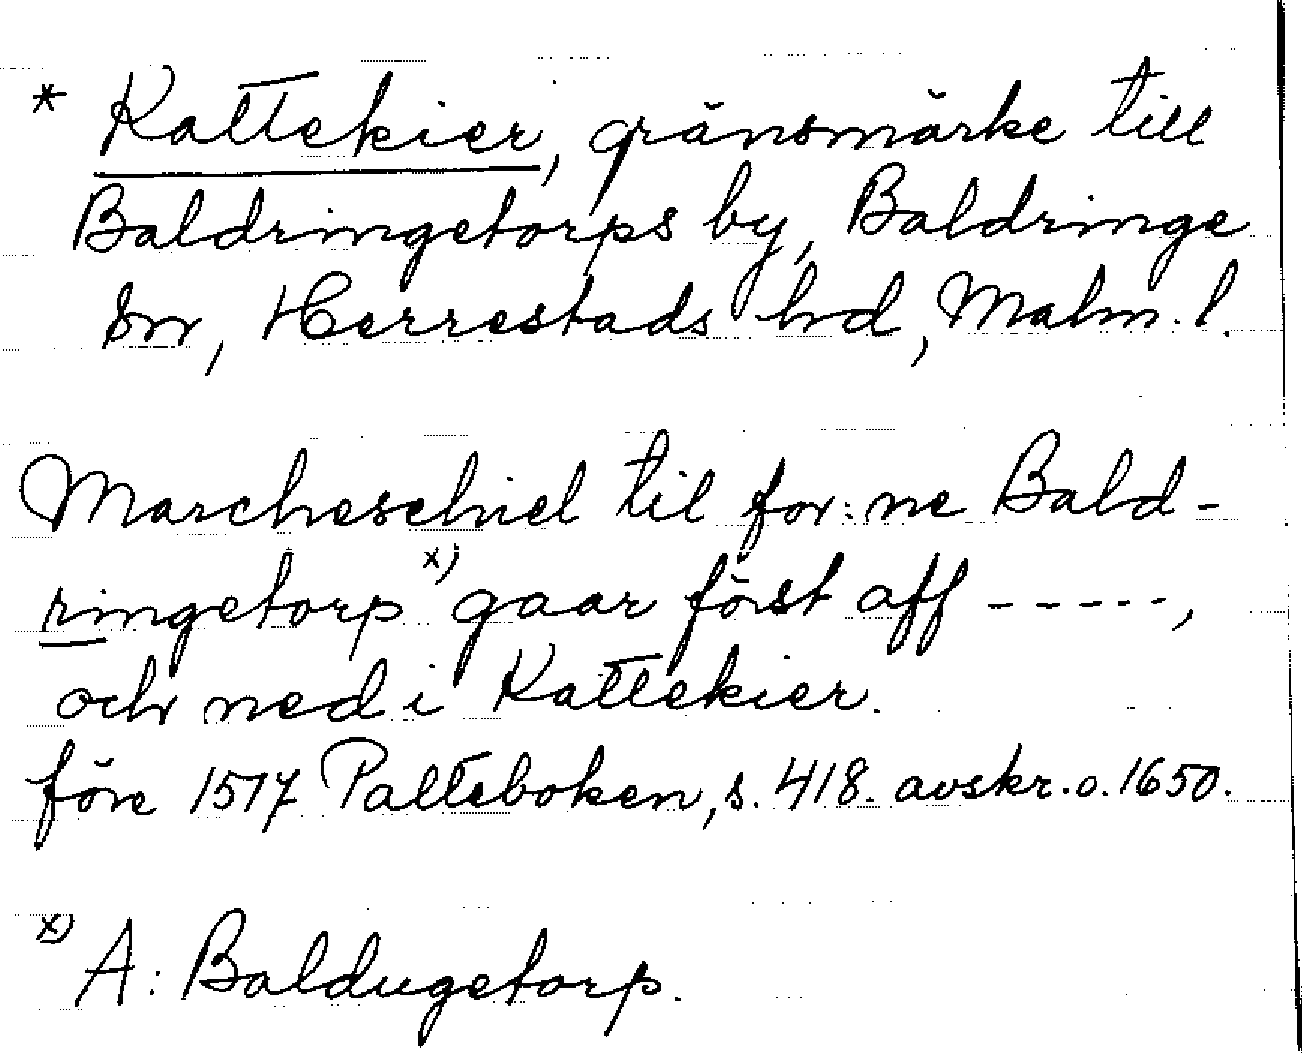 * Kattekier, gränsmärke till
Baldringetorps by, Baldringe
sn, Herrestads hd, Malm. l.
Marcheschiel til for: ne Bald-
ringetorp x) gaar först aff -----,
och ned i Kattekier.
före 1517 Palteboken, s. 418. avskr. o. 1650.
x) A: Baldugetorp.